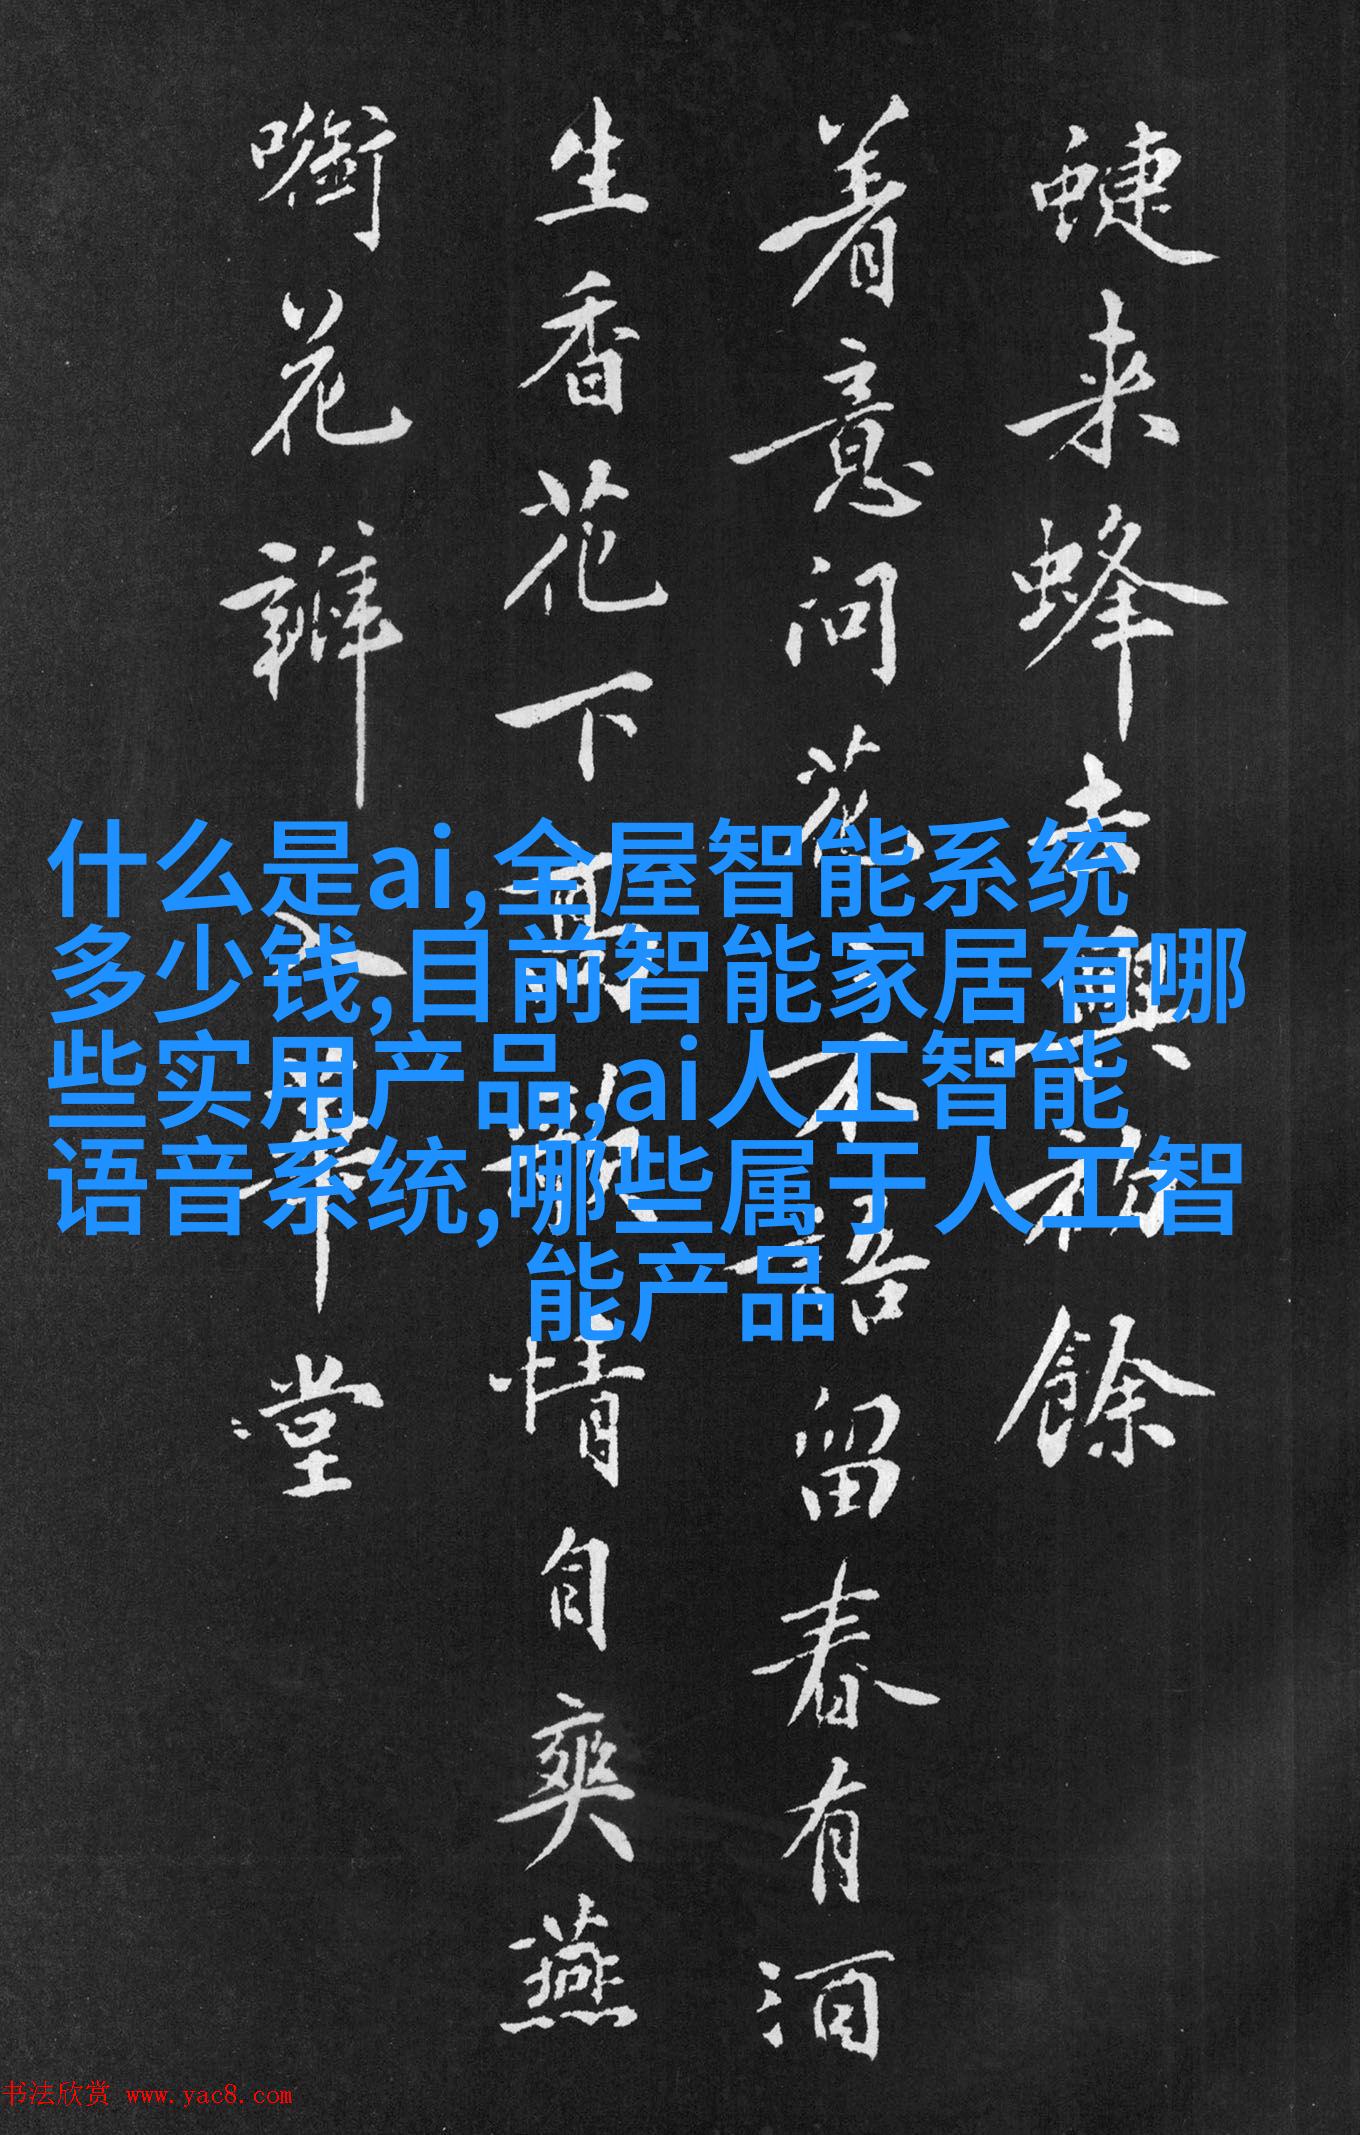 蜨来蜂去興初餘
着意问花花不語留春有酒
生香花下高歌情自爽燕
啣花瓣入華堂
什么是ai,全屋智能系统
多少钱,目前智能家居有哪
些实用产品,ai人工智能
语音系统,哪些属于人工智
能产品
书法欣赏 www.yac8.com